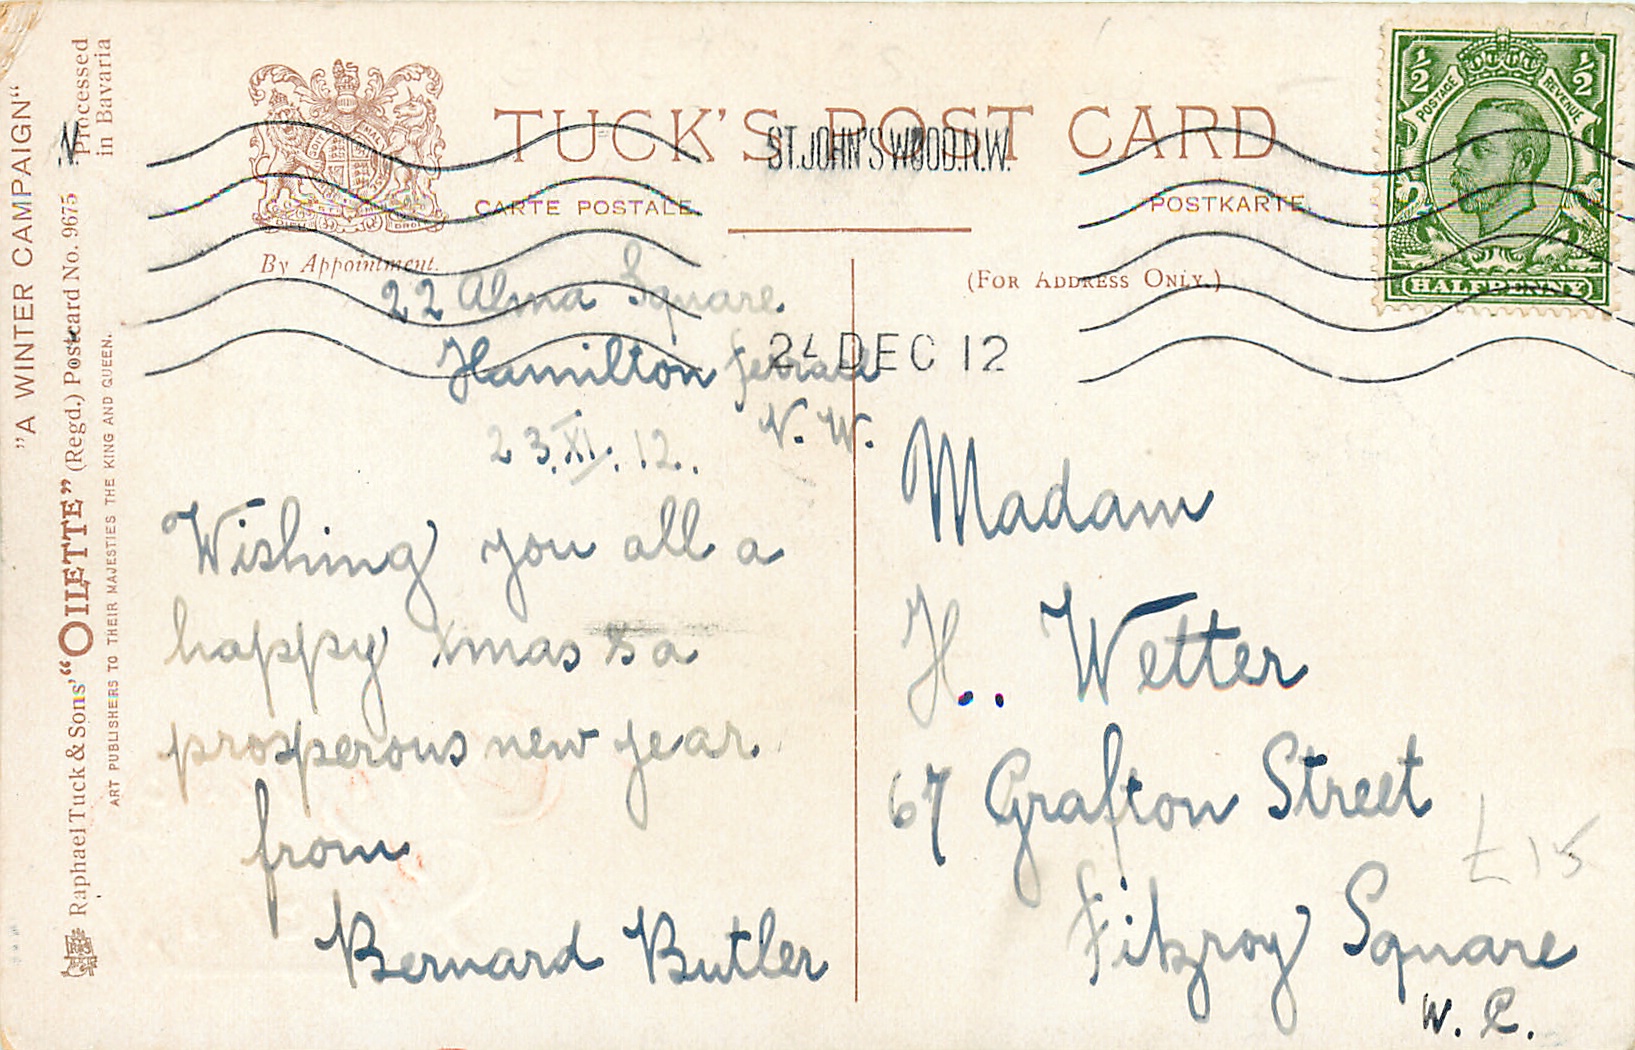 "A WINTER CAMPAIGN"
Processed
in Bavaria
Raphael Tuck & Sons' "OILETTE" (Regd.) Postcard No. 9675
ART PUBLISHERS TO THEIR MAJESTIES THE KING AND QUEEN.
TUCK'S POST CARD
CARTE POSTALE
POSTKARTE
By Appointment.
(FOR ADDRESS ONLY.)
ST. JOHN'S WOOD. N.W.
24 DEC 12
1/2
1/2
POSTAGE
REVENUE
HALFPENNY
22 Alma Square
Hamilton Terrace
N. W.
23. XI. 12.
Wishing you all a
happy Xmas & a
prosperous new year
from
Bernard Butler
Madam
H.. Wetter
67 Grafton Street
Fitzroy Square
W. C.
£15